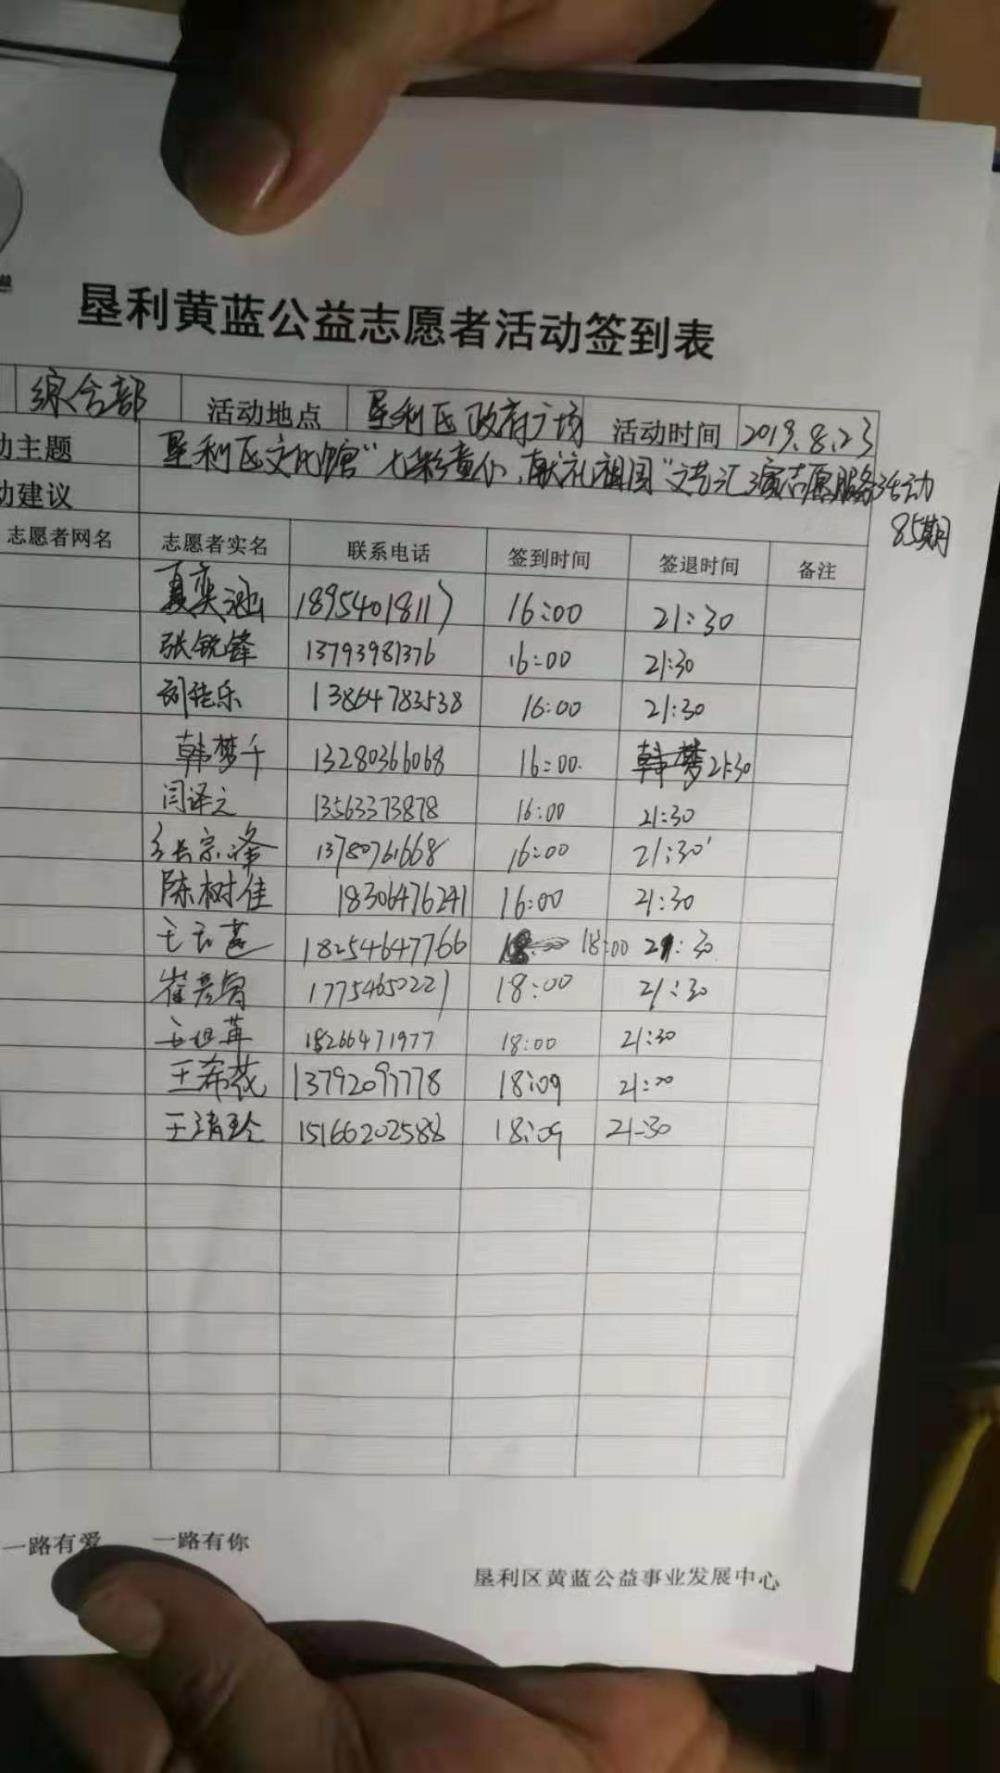 垦利黄蓝公益志愿者活动签到表
综合部 活动地点 垦利区政府广场 活动时间 2019.8.23
动主题 垦利区文化馆“七彩童心,献礼祖国”文艺汇演志愿服务活动
85期
动建议
志愿者网名 志愿者实名 联系电话 签到时间 签退时间 备注
夏奕涵 18954018117 16:00 21:30
张锐锋 13793981376 16:00 21:30
刘佳乐 13864783538 16:00 21:30
韩梦千 13280366068 16:00 韩梦 21:30
闫译之 13563373878 16:00 21:30
宗泽 13780761668 16:00 21:30
陈树佳 18306476241 16:00 21:30
18254647766 18:00 21:30
崔彦 17754650221 18:00 21:30
18266471977 18:00 21:30
王希花 13792097778 18:09 21:00
王清玲 15166202588 18:09 21:30
一路有爱 一路有你
垦利区黄蓝公益事业发展中心